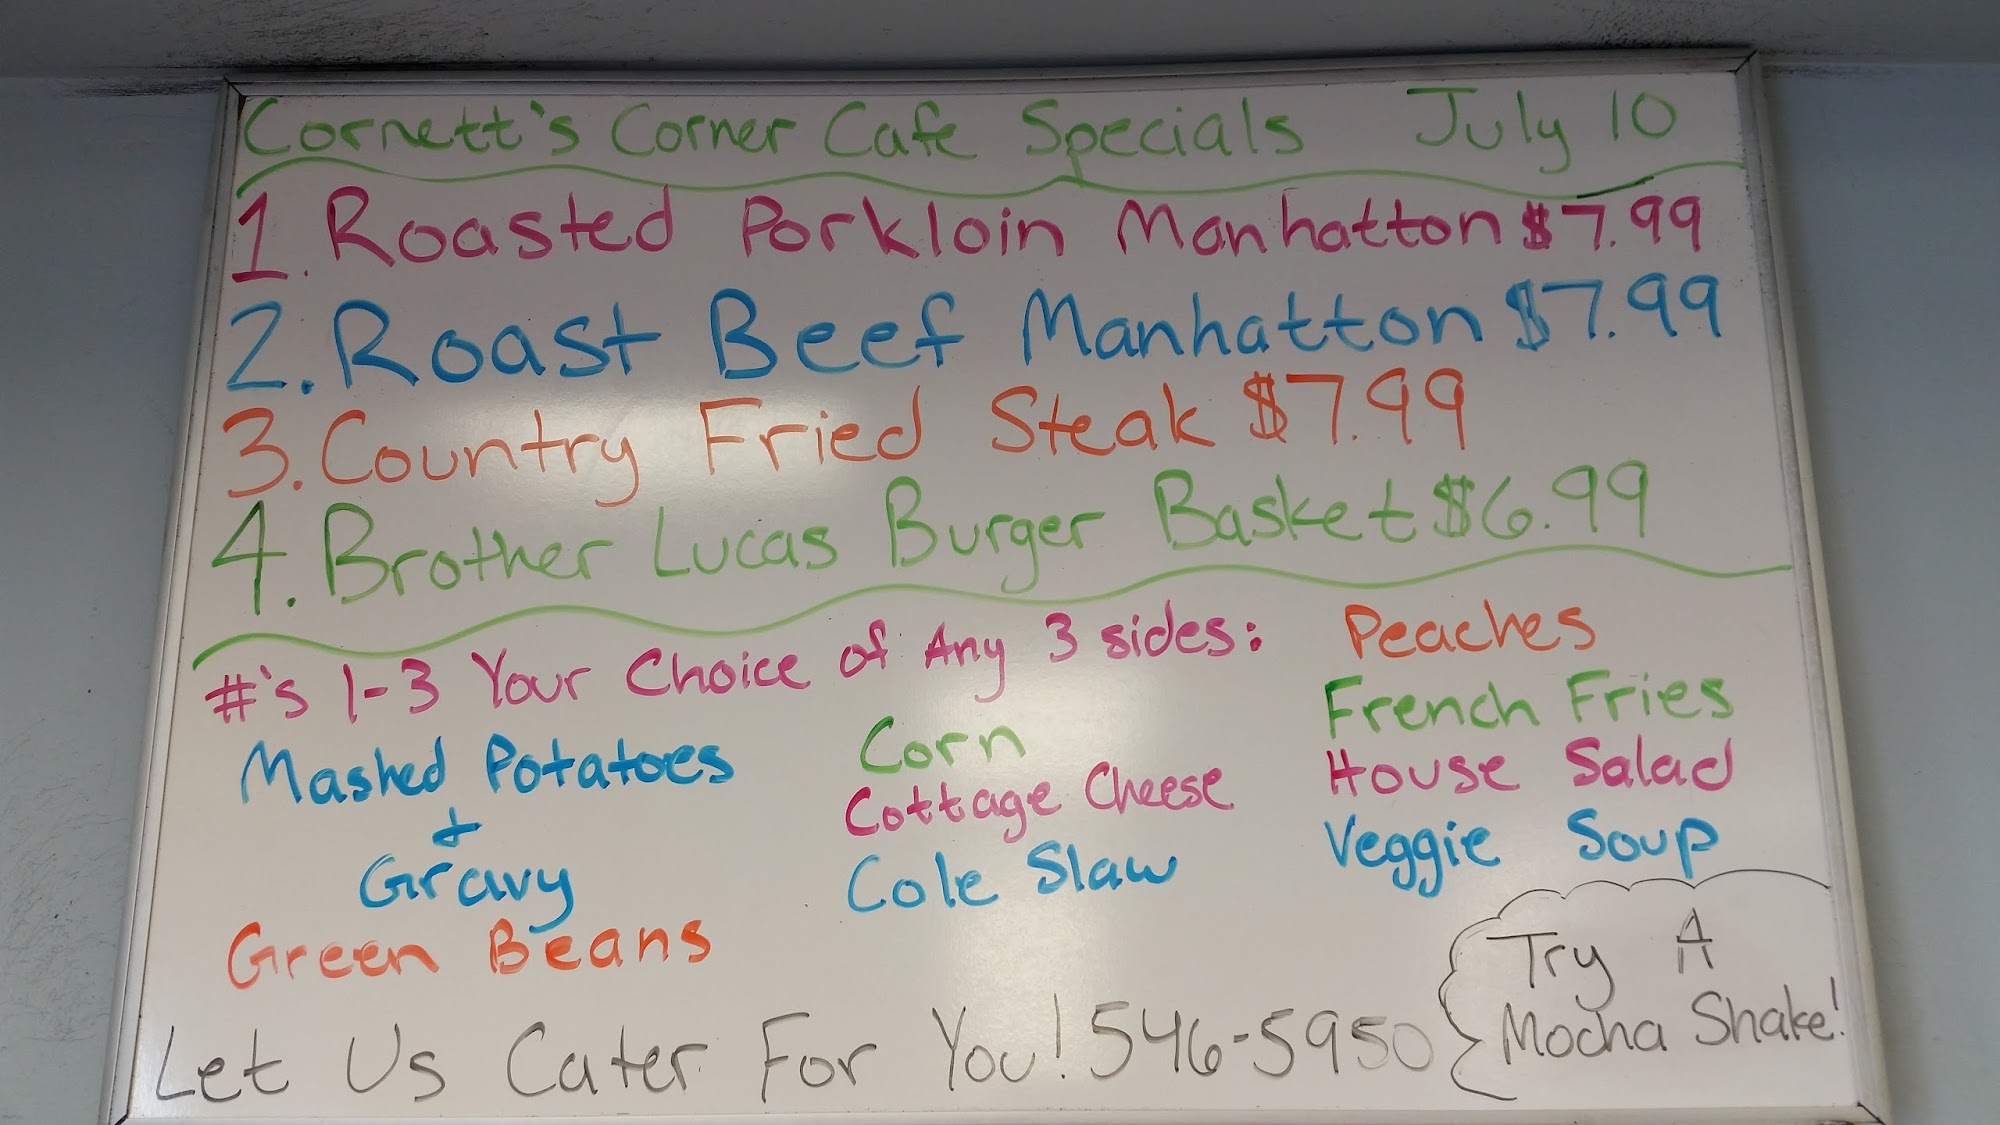 Cornett's Corner Cafe Specials July 10
1. Roasted Porkloin Manhatton $7.99
2. Roast Beef Manhatton $7.99
3. Country Fried Steak $7.99
4. Brother Lucas Burger Basket $6.99
#'s 1-3 Your Choice of Any 3 sides:
Mashed Potatoes
+
Gravy
Green Beans
Corn
Cottage Cheese
Cole Slaw
Peaches
French Fries
House Salad
Veggie Soup
Let Us Cater For You! 546-5950
Try A
Mocha Shake!